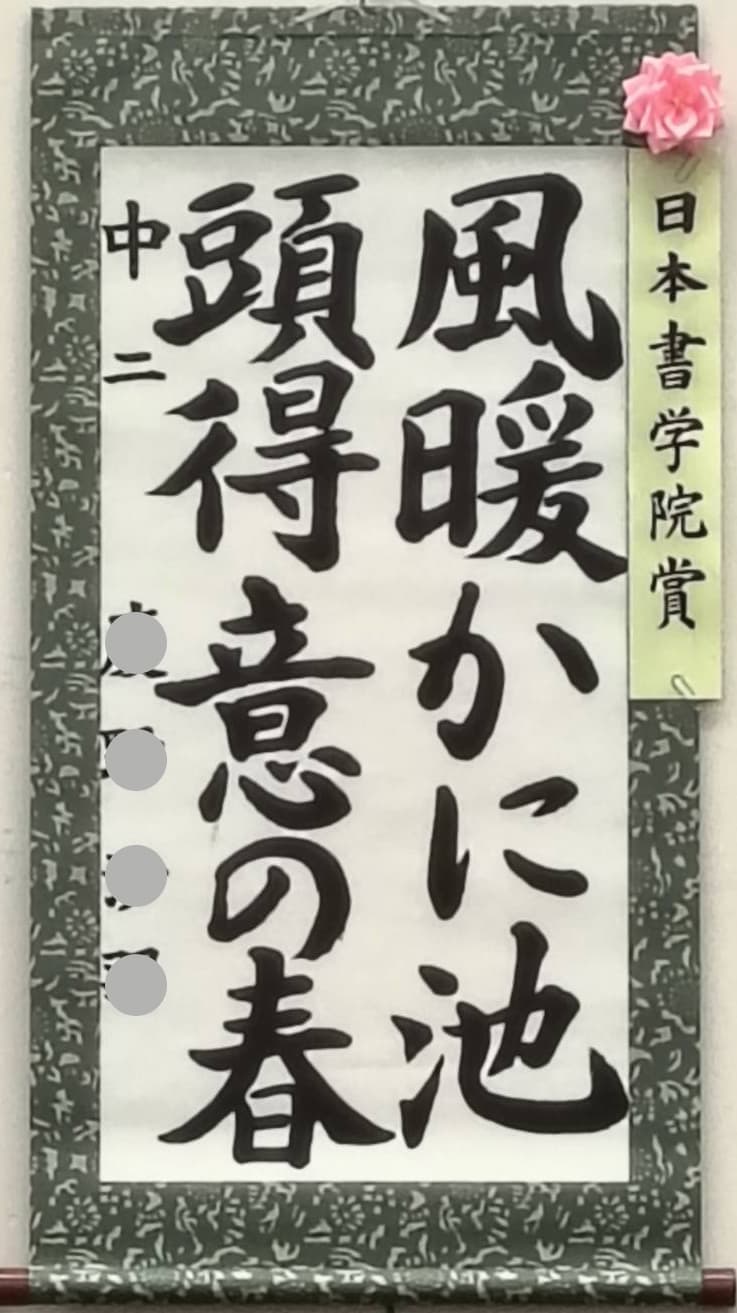 日本書学院賞
風暖かに池
頭得意の春
中二